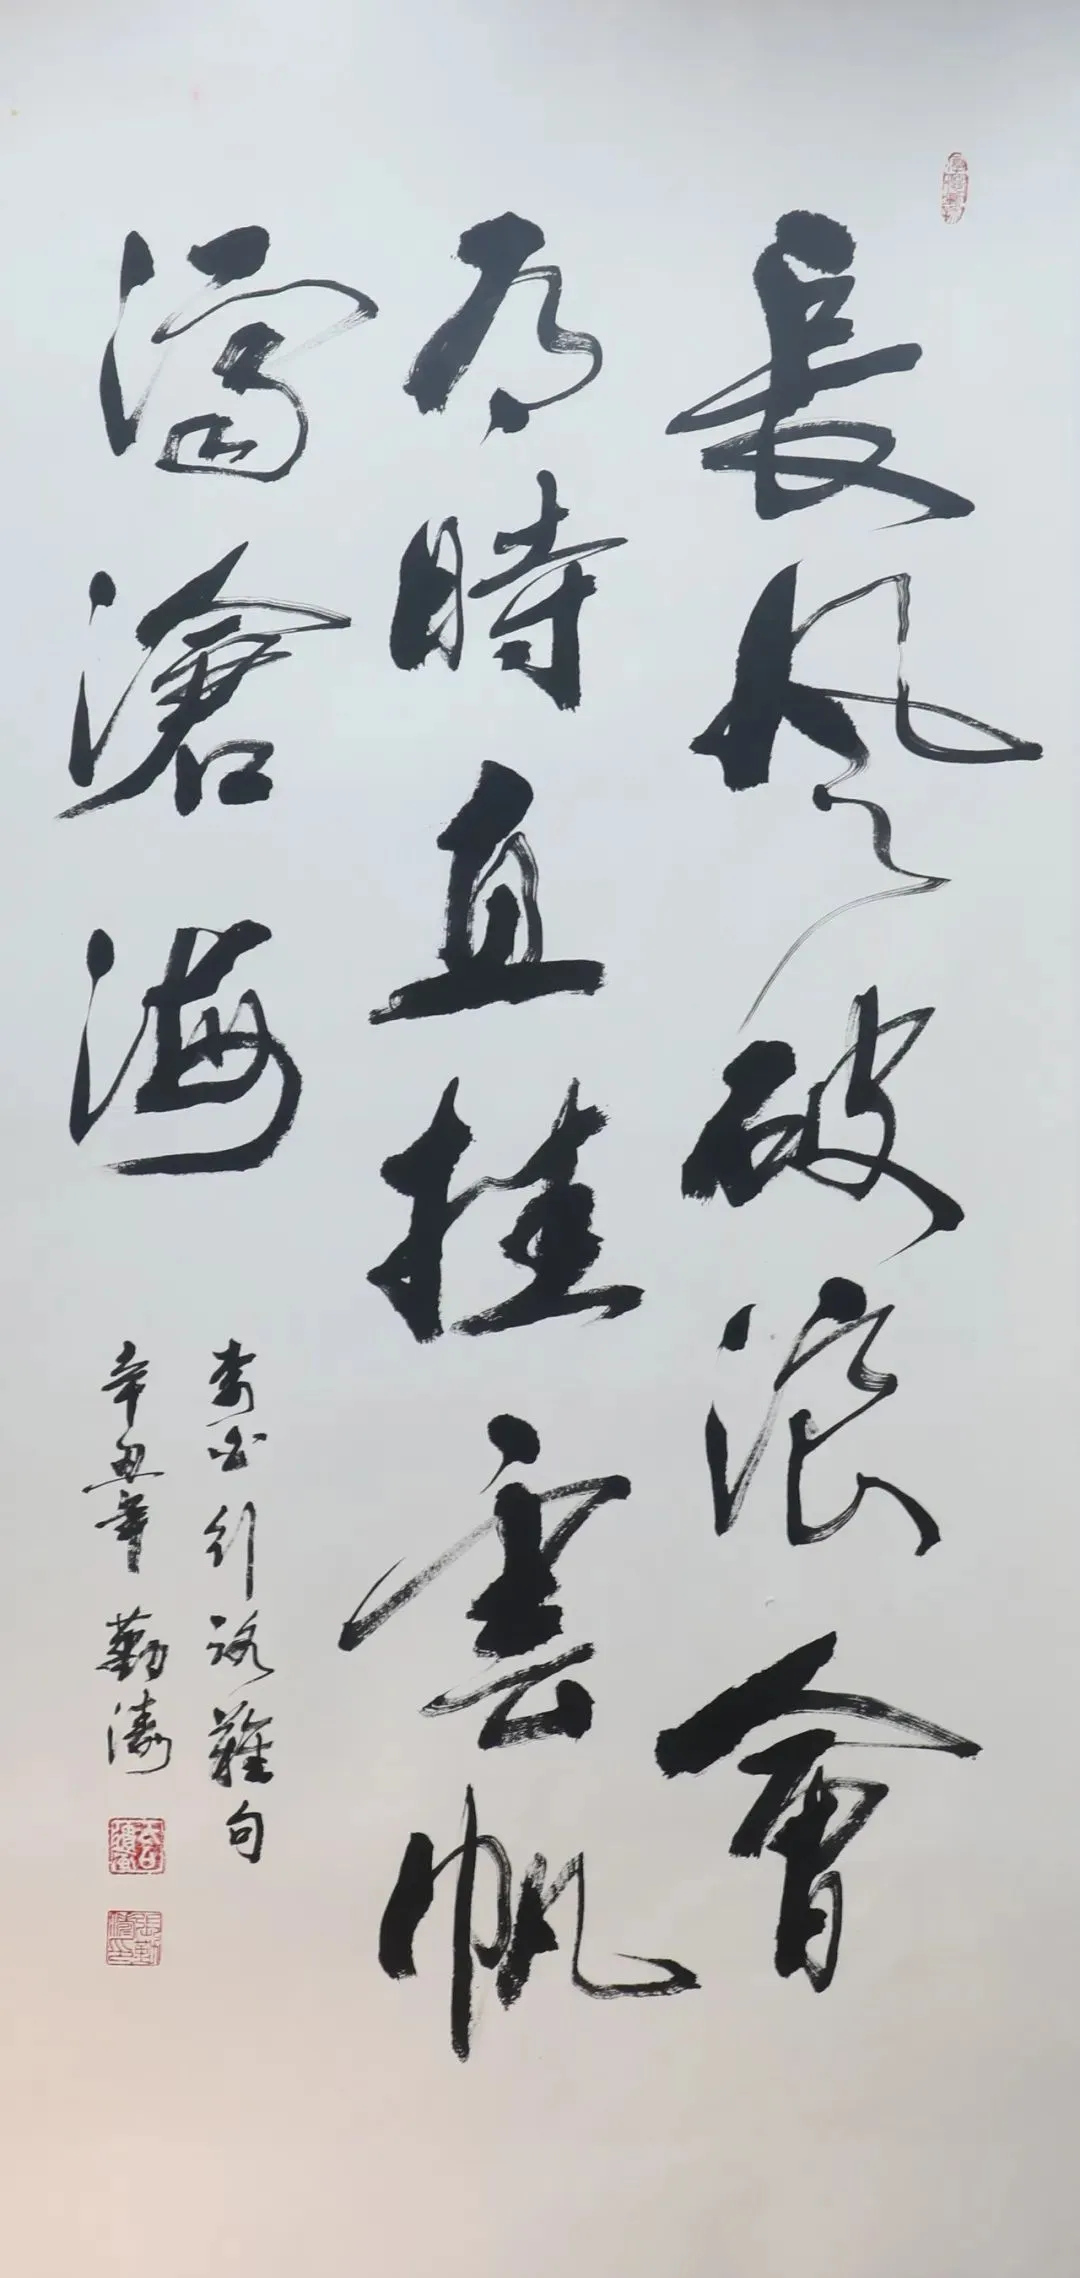 長風破浪會
有時直挂雲帆
濟滄海
李白行路難句
辛丑年勤濤